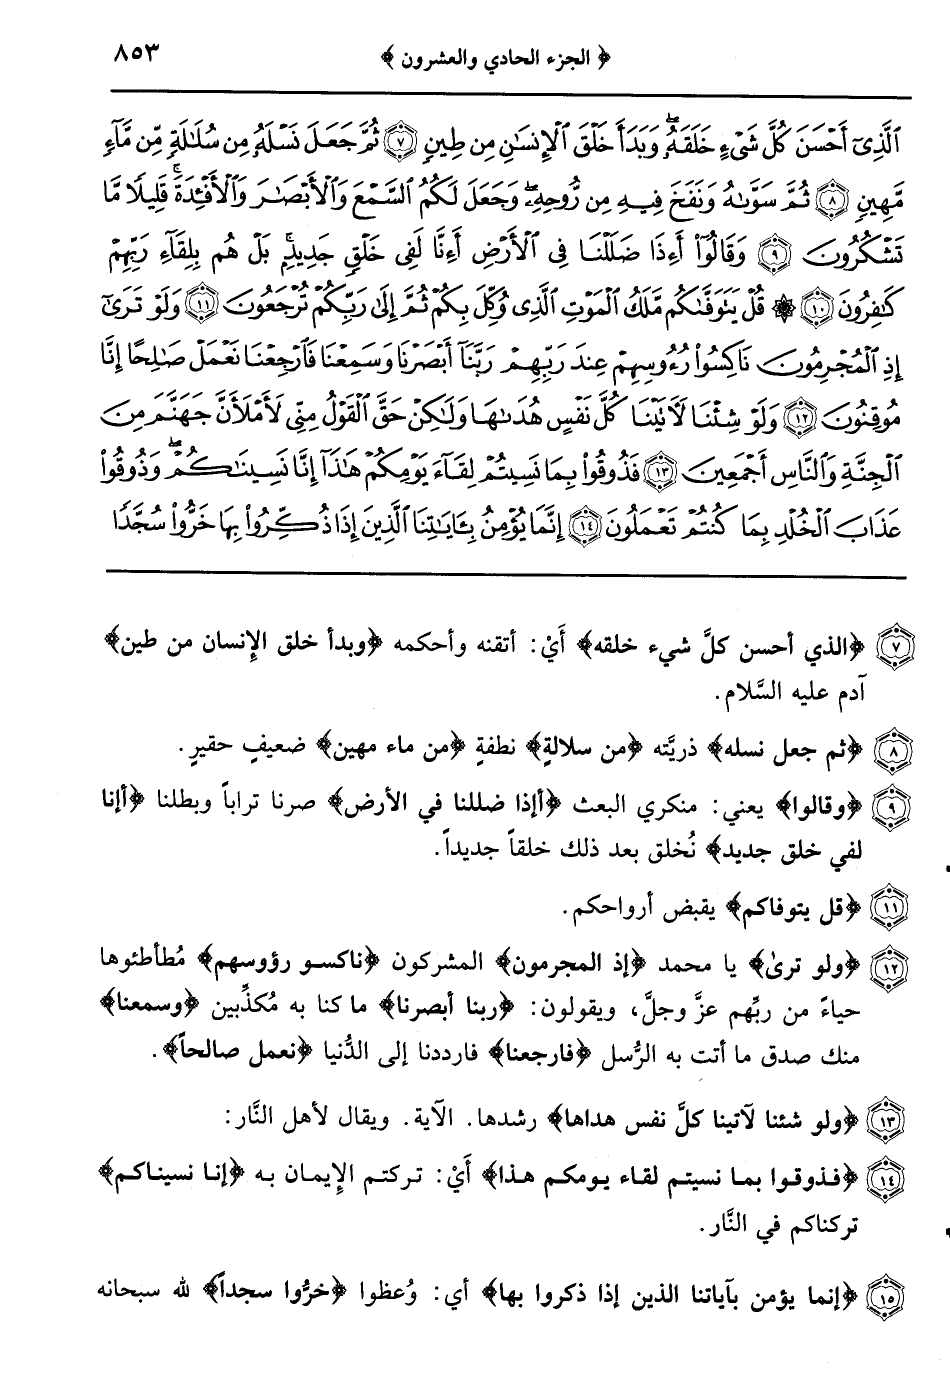 ﴿ الجزء الحادي والعشرون ﴾ ٨٥٣
ٱلَّذِىٓ أَحْسَنَ كُلَّ شَىْءٍ خَلَقَهُۥ ۖ وَبَدَأَ خَلْقَ ٱلْإِنسَـٰنِ مِن طِينٍ ٧ ثُمَّ جَعَلَ نَسْلَهُۥ مِن سُلَـٰلَةٍ مِّن مَّآءٍ
مَّهِينٍ ٨ ثُمَّ سَوَّىٰهُ وَنَفَخَ فِيهِ مِن رُّوحِهِۦ ۖ وَجَعَلَ لَكُمُ ٱلسَّمْعَ وَٱلْأَبْصَـٰرَ وَٱلْأَفْـِٔدَةَ ۚ قَلِيلًا مَّا
تَشْكُرُونَ ٩ وَقَالُوٓا۟ أَءِذَا ضَلَلْنَا فِى ٱلْأَرْضِ أَءِنَّا لَفِى خَلْقٍ جَدِيدٍۭ ۚ بَلْ هُم بِلِقَآءِ رَبِّهِمْ
كَـٰفِرُونَ ١٠ ۞ قُلْ يَتَوَفَّىٰكُم مَّلَكُ ٱلْمَوْتِ ٱلَّذِى وُكِّلَ بِكُمْ ثُمَّ إِلَىٰ رَبِّكُمْ تُرْجَعُونَ ١١ وَلَوْ تَرَىٰٓ
إِذِ ٱلْمُجْرِمُونَ نَاكِسُوا۟ رُءُوسِهِمْ عِندَ رَبِّهِمْ رَبَّنَآ أَبْصَرْنَا وَسَمِعْنَا فَٱرْجِعْنَا نَعْمَلْ صَـٰلِحًا إِنَّا
مُوقِنُونَ ١٢ وَلَوْ شِئْنَا لَـَٔاتَيْنَا كُلَّ نَفْسٍ هُدَىٰهَا وَلَـٰكِنْ حَقَّ ٱلْقَوْلُ مِنِّى لَأَمْلَأَنَّ جَهَنَّمَ مِنَ
ٱلْجِنَّةِ وَٱلنَّاسِ أَجْمَعِينَ ١٣ فَذُوقُوا۟ بِمَا نَسِيتُمْ لِقَآءَ يَوْمِكُمْ هَـٰذَآ إِنَّا نَسِينَـٰكُمْ ۖ وَذُوقُوا۟
عَذَابَ ٱلْخُلْدِ بِمَا كُنتُمْ تَعْمَلُونَ ١٤ إِنَّمَا يُؤْمِنُ بِـَٔايَـٰتِنَا ٱلَّذِينَ إِذَا ذُكِّرُوا۟ بِهَا خَرُّوا۟ سُجَّدًا
٧ ﴿الذي أحسن كلَّ شيء خلقه﴾ أَيْ: أتقنه وأحكمه ﴿وبدأ خلق الإِنسان من طين﴾
آدم عليه السَّلام.
٨ ﴿ثم جعل نسله﴾ ذريَّته ﴿من سلالةٍ﴾ نطفةٍ ﴿من ماء مهين﴾ ضعيفٍ حقيرٍ.
٩ ﴿وقالوا﴾ يعني: منكري البعث ﴿أإذا ضللنا في الأرض﴾ صرنا تراباً وبطلنا ﴿أإنا
لفي خلق جديد﴾ نُخلق بعد ذلك خلقاً جديداً.
١١ ﴿قل يتوفاكم﴾ يقبض أرواحكم.
١٢ ﴿ولو ترىٰ﴾ يا محمد ﴿إذ المجرمون﴾ المشركون ﴿ناكسو رؤوسهم﴾ مُطأطئوها
حياءً من ربِّهم عزَّ وجلَّ، ويقولون: ﴿ربنا أبصرنا﴾ ما كنا به مُكذِّبين ﴿وسمعنا﴾
منك صدق ما أتت به الرُّسل ﴿فارجعنا﴾ فارددنا إلى الدُّنيا ﴿نعمل صالحاً﴾.
١٣ ﴿ولو شئنا لآتينا كلَّ نفس هداها﴾ رشدها. الآية. ويقال لأهل النَّار:
١٤ ﴿فذوقوا بما نسيتم لقاء يومكم هذا﴾ أَيْ: تركتم الإِيمان به ﴿إنا نسيناكم﴾
تركناكم في النَّار.
١٥ ﴿إنما يؤمن بآياتنا الذين إذا ذكروا بها﴾ أي: وُعظوا ﴿خرُّوا سجداً﴾ لله سبحانه